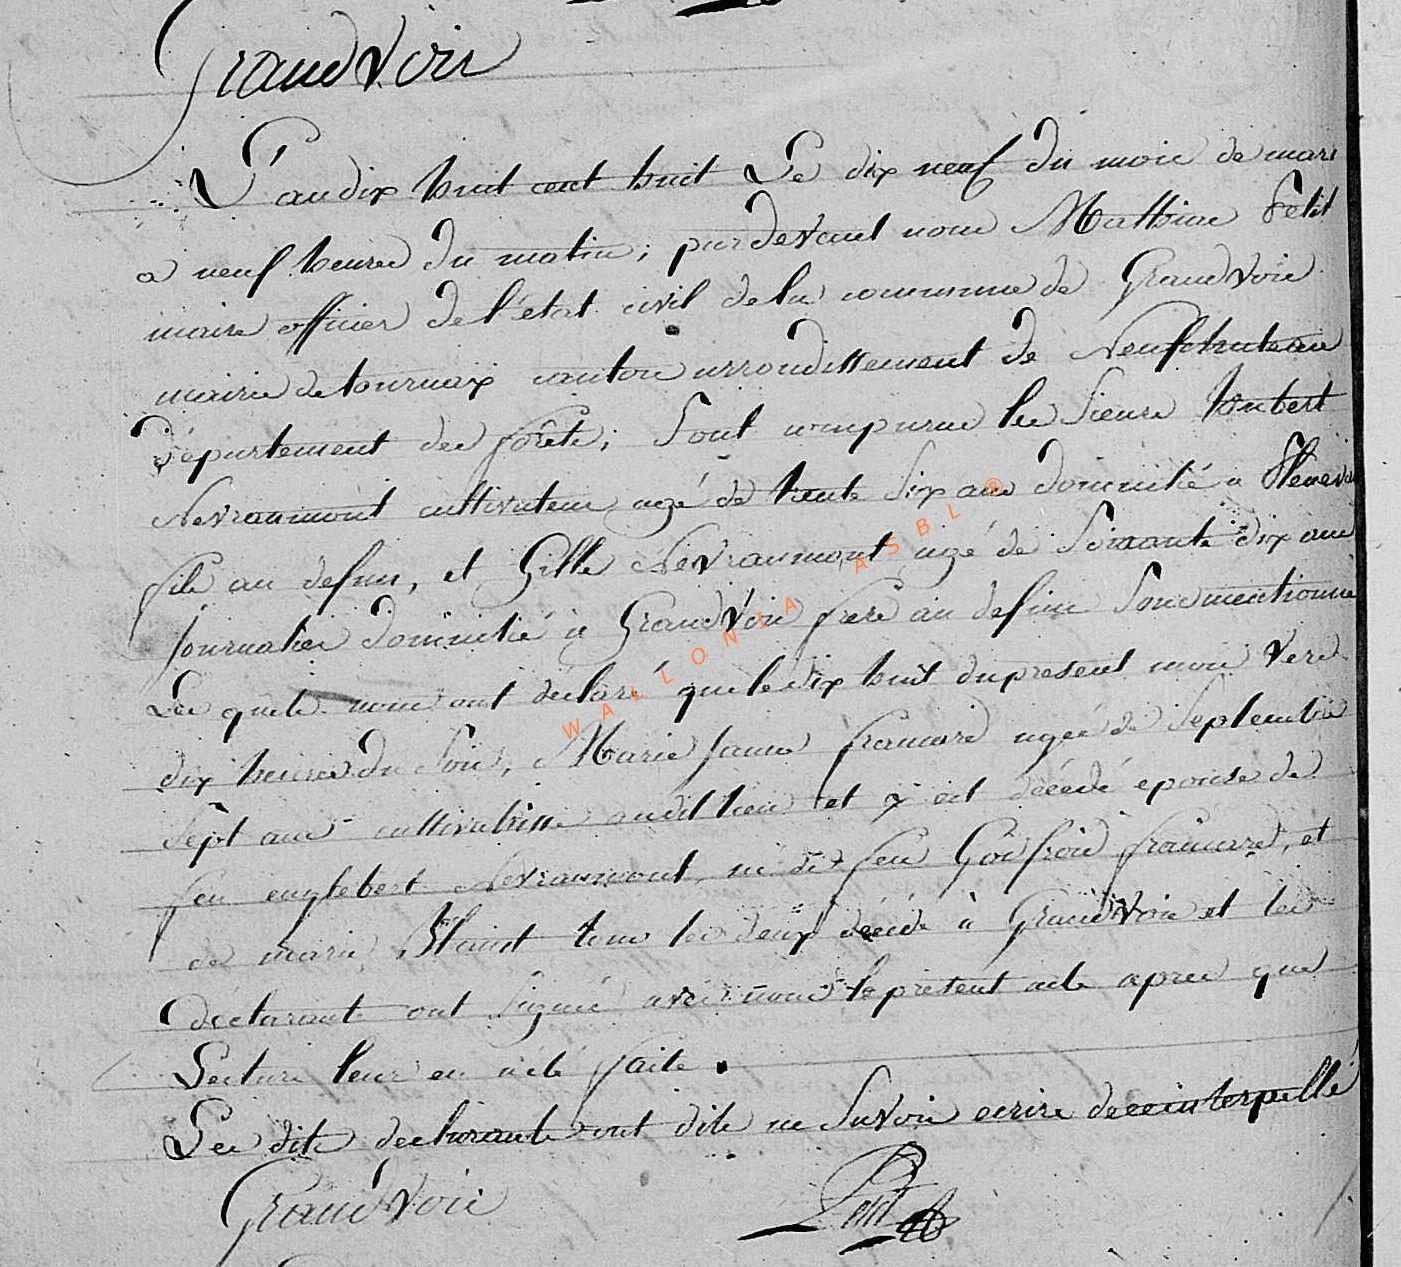 Grandvoir
L'an dix huit cent huit Le dix neuf du mois de mars
a neuf heures du matin; par devant nous Mathieu Petit
maire officier de l'état civil de la commune de Grandvoir
mairie de tournay canton arrondissement de Neufchateau
département des forêts; Sont comparus les Sieurs hubert
Nevraumont cultivateur agé de trente Six ans domicilié a
fils au defun, et Gille Nevraumont agé de Soixante dix ans
journalier domicilié à Grandvoir frere au defun Sousmentionné
Les quels nous ont déclaré que le dix huit du present mois vers
dix heures du Soir, Marie Jeanne framard agée de Septante
Sept ans cultivatrice audit lieu et y est décédé epouse de
feu englebert Nevraumont, feu Godfroid et
de marie tous les deux décédé à Grandvoir et les
declarant ont Signé avec nous le present acte apres que
Lecture leur en a été faite.
Les dits declarants ont dits ne Savoir ecrire de ce interpellé
Grandvoir
Petit
WALLONIA ASBL ®